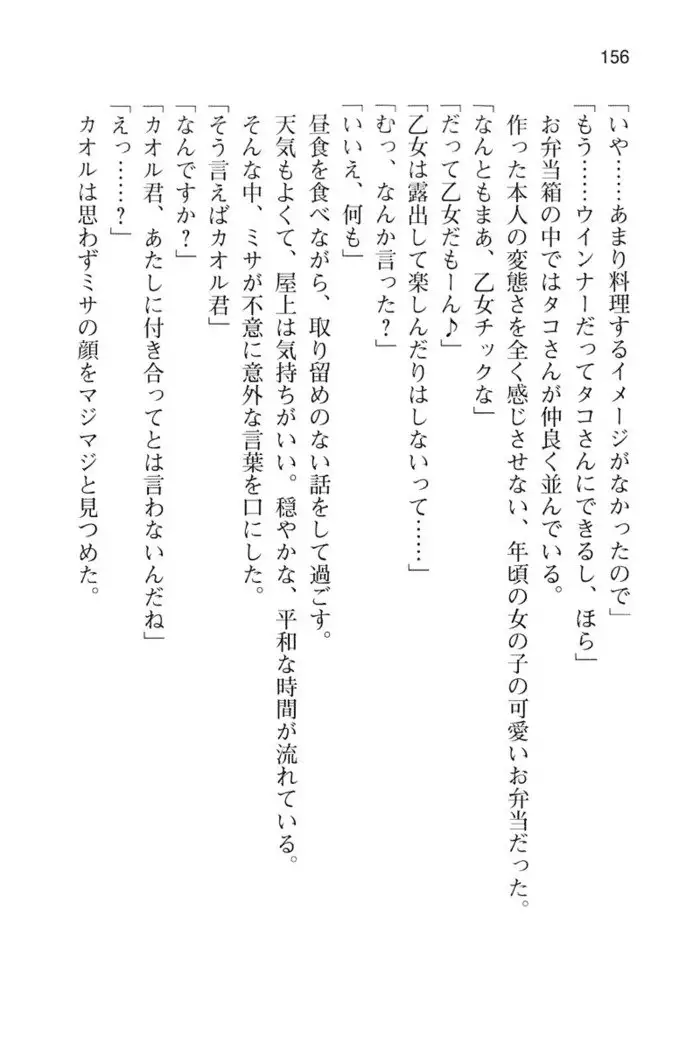 156
「いや……あまり料理するイメージがなかったので」
「もう……ウインナーだってタコさんにできるし、ほら」
お弁当箱の中ではタコさんが仲良く並んでいる。
作った本人の変態さを全く感じさせない、年頃の女の子の可愛いお弁当だった。
「なんともまあ、乙女チックな」
「だって乙女だもーん♪」
「乙女は露出して楽しんだりはしないって……」
「むっ、なんか言った?」
「いいえ、何も」
昼食を食べながら、取り留めのない話をして過ごす。
天気もよくて、屋上は気持ちがいい。穏やかな、平和な時間が流れている。
そんな中、ミサが不意に意外な言葉を口にした。
「そう言えばカオル君」
「なんですか?」
「カオル君、あたしに付き合ってとは言わないんだね」
「えっ……?」
カオルは思わずミサの顔をマジマジと見つめた。